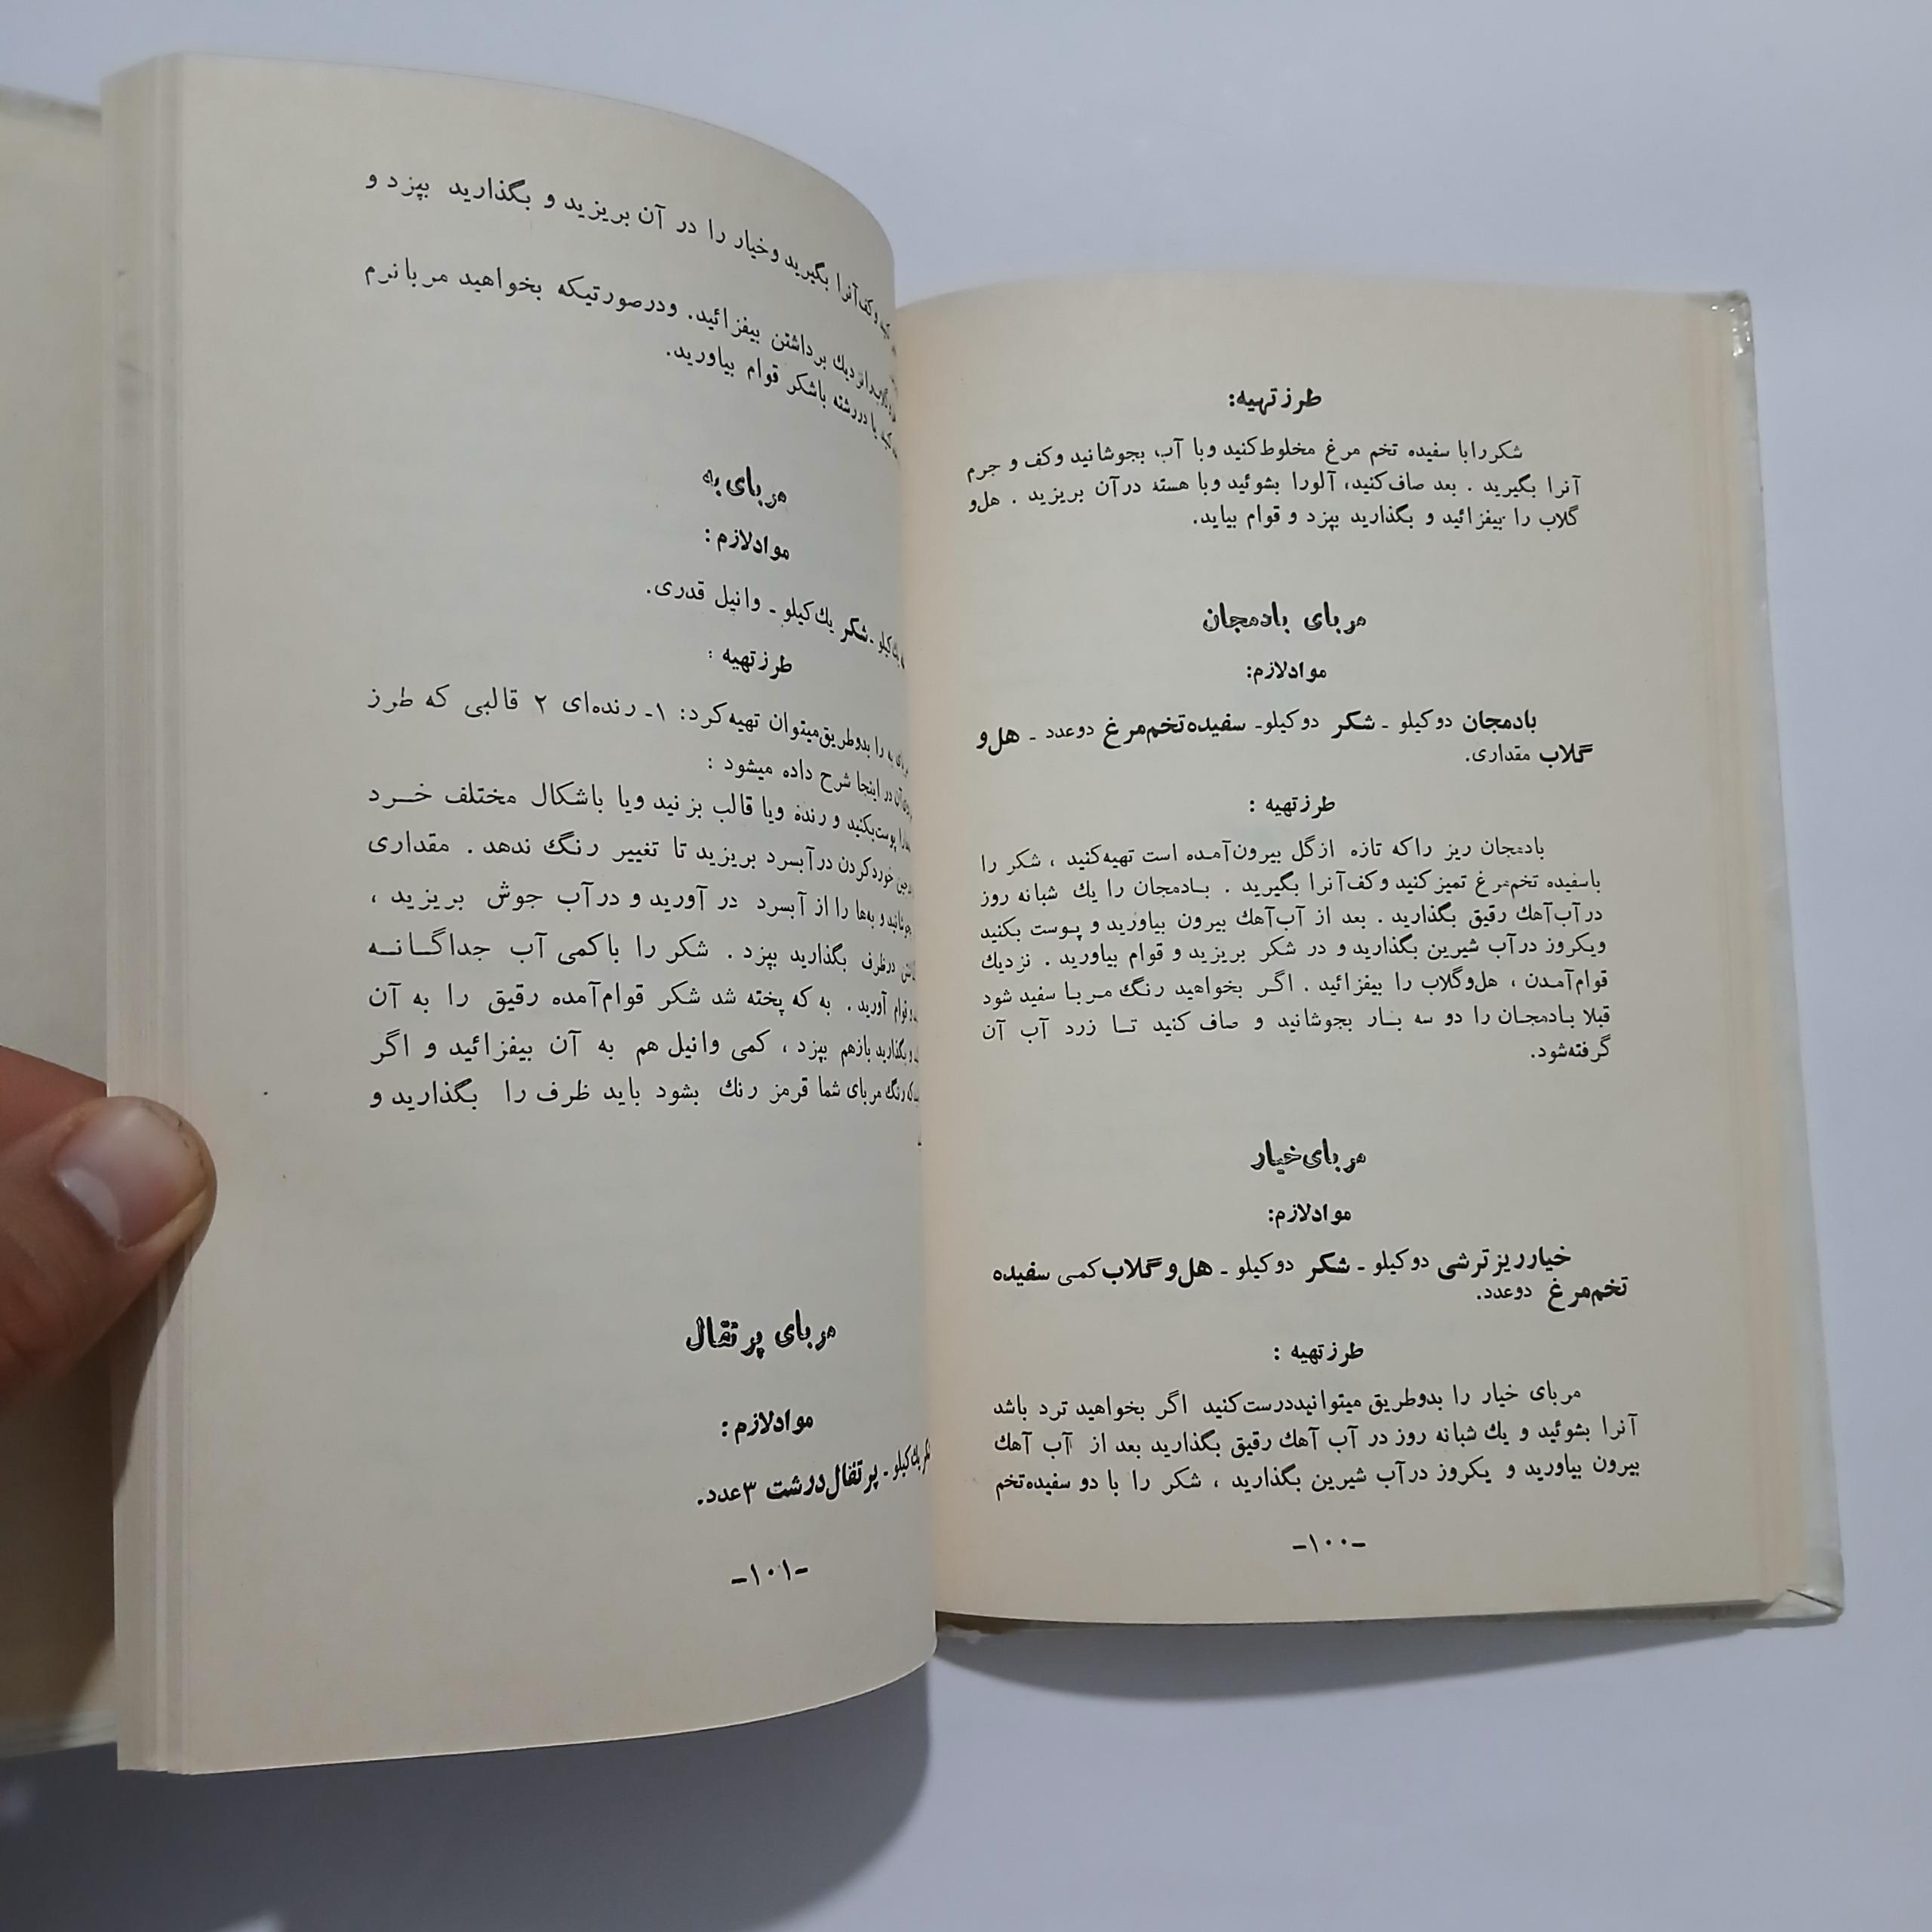 طرز تهیه:
شکر را با سفیده تخم مرغ مخلوط کنید و با آب بجوشانید و کف و جرم
آنرا بگیرید . بعد صاف کنید، آلو را بشوئید و با هسته در آن بریزید . هل و
گلاب را بیفزائید و بگذارید بپزد و قوام بیاید.
مربای بادمجان
مواد لازم:
بادمجان دو کیلو - شکر دو کیلو - سفیده تخم مرغ دو عدد - هل و
گلاب مقداری.
طرز تهیه :
بادمجان ریز را که تازه از گل بیرون آمده است تهیه کنید ، شکر را
با سفیده تخم مرغ تمیز کنید و کف آنرا بگیرید . بادمجان را یك شبانه روز
در آب آهك رقیق بگذارید . بعد از آب آهك بیرون بیاورید و پوست بکنید
و یکروز در آب شیرین بگذارید و در شکر بریزید و قوام بیاورید . نزدیك
قوام آمدن ، هل و گلاب را بیفزائید . اگر بخواهید رنگ مربا سفید شود
قبلا بادمجان را دو سه بار بجوشانید و صاف کنید تا زرد آب آن
گرفته شود.
مربای خیار
مواد لازم:
خیار ریز ترشی دو کیلو - شکر دو کیلو - هل و گلاب کمی سفیده
تخم مرغ دو عدد.
طرز تهیه :
مربای خیار را بدو طریق میتوانید درست کنید اگر بخواهید ترد باشد
آنرا بشوئید و یك شبانه روز در آب آهك رقیق بگذارید بعد از آب آهك
بیرون بیاورید و یکروز در آب شیرین بگذارید ، شکر را با دو سفیده تخم
-۱۰۰-
و کف آنرا بگیرید و خیار را در آن بریزید و بگذارید بپزد و
نزدیك برداشتن بیفزائید. و در صورتیکه بخواهید مربا نرم
یا در رشته با شکر قوام بیاورید.
مربای به
مواد لازم :
یك کیلو - شکر یك کیلو - وانیل قدری.
طرز تهیه :
به را بدو طریق میتوان تهیه کرد: ۱- رنده‌ای ۲ قالبی که طرز
آن در اینجا شرح داده میشود :
را پوست بکنید و رنده و یا قالب بزنید و یا باشکال مختلف خرد
خورد کردن در آبسرد بریزید تا تغییر رنگ ندهد . مقداری
بجوشانید و به‌ها را از آبسرد در آورید و در آب جوش بریزید ،
در ظرف بگذارید بپزد . شکر را با کمی آب جداگانه
قوام آورید . به که پخته شد شکر قوام آمده رقیق را به آن
و بگذارید باز هم بپزد ، کمی وانیل هم به آن بیفزائید و اگر
که رنگ مربای شما قرمز رنك بشود باید ظرف را بگذارید و
مربای پرتقال
مواد لازم :
شکر یك کیلو - پرتقال درشت ۳ عدد.
-۱۰۱-